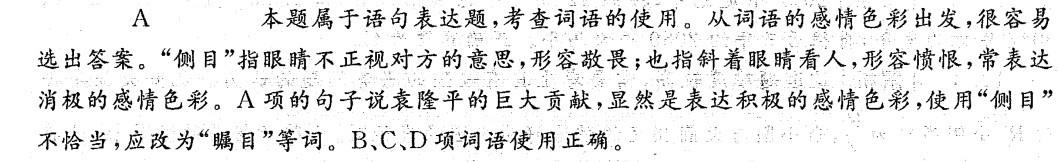 A 本题属于语句表达题,考查词语的使用。从词语的感情色彩出发,很容易
选出答案。“侧目”指眼睛不正视对方的意思,形容敬畏;也指斜着眼睛看人,形容愤恨,常表达
消极的感情色彩。A 项的句子说袁隆平的巨大贡献,显然是表达积极的感情色彩,使用“侧目”
不恰当,应改为“瞩目”等词。B、C、D 项词语使用正确。